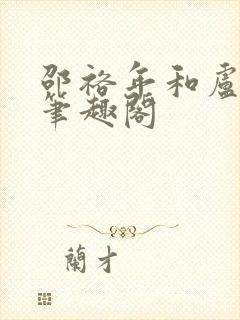 邵裕年和盧
筆趣閣
蘭才